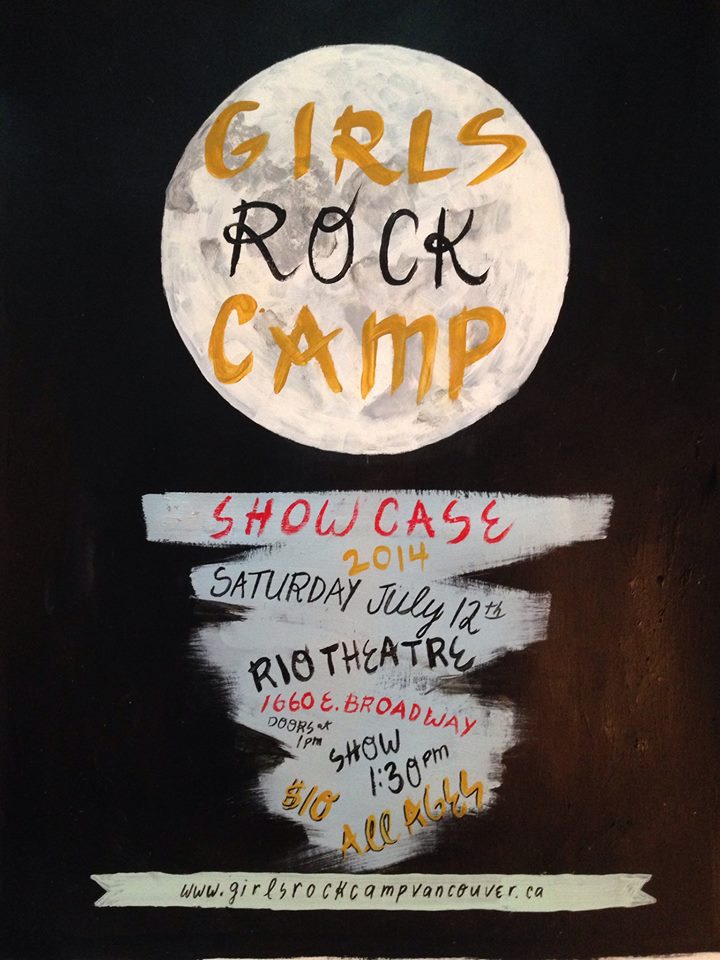 GIRLS
ROCK
CAMP
SHOWCASE
2014
SATURDAY July 12th
RIO THEATRE
1660 E. BROADWAY
DOORS at
1pm
SHOW
1:30pm
$10
All AGES
www.girlsrockcampvancouver.ca